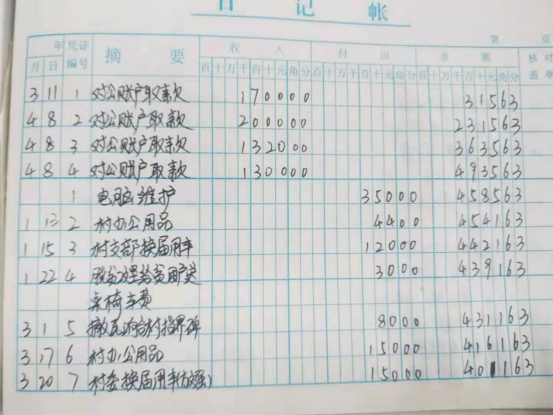 日记帐
第 页
年 凭证编号 摘要 收入 付出 余额 核对盖章
月 日 百十万千百十元角分 百十万千百十元角分 百十万千百十元角分
3 11 1 对公账户取款 170000 31563
4 8 2 对公账户取款 200000 231563
4 8 3 对公账户取款 132000 363563
4 8 4 对公账户取款 130000 493563
1 电脑维护 35000 458563
1 13 2 村办公用品 4400 454163
1 15 3 村支部换届用车 12000 442163
1 22 4 3000 439163
桌椅车费
3 1 5 8000 431163
3 17 6 村办公用品 15000 416163
3 20 7 村委换届用车 15000 401163